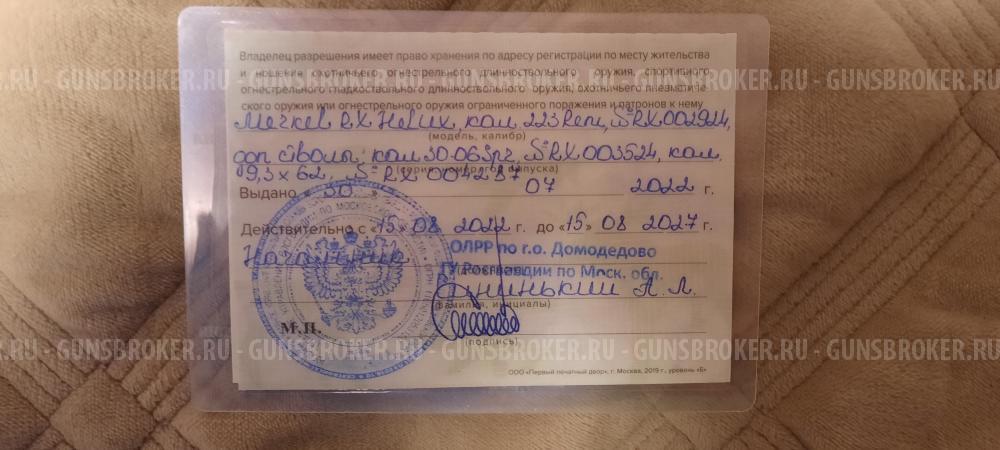 Владелец разрешения имеет право хранения по адресу регистрации по месту жительства
и ношения охотничьего огнестрельного длинноствольного оружия, спортивного
RU - GUNSBROKER.RU - GUNSBROKER.RU - GUNSBROKER.RU - GUNSBROKER.RU - GUNSBROKER
огнестрельного гладкоствольного длинноствольного оружия, охотничьего пневматиче-
ского оружия или огнестрельного оружия ограниченного поражения и патронов к нему
Меркель RX Helix, кал. 223 Rem, S-RX 002924,
(модель, калибр)
доп стволы, кал 30-06 Spr, S-RX 003524, кал.
9,3 x 62, S-RX 004287
Выдано « 30 » 07 2022 г.
Действительно с «15» 08 2022 г. до «15» 08 2027 г.
Начальник
ОЛРР по г.о. Домодедово
ГУ Росгвардии по Моск. обл.
А. Л.
(фамилия, инициалы)
М.П.
(подпись)
RU - GUNSBROKER.RU - GUNSBROKER.RU - GUNSBROKER.RU - GUNSBROKER.RU - GUNSBROKER
ООО «Первый печатный двор», г. Москва, 2019 г., уровень «Б»